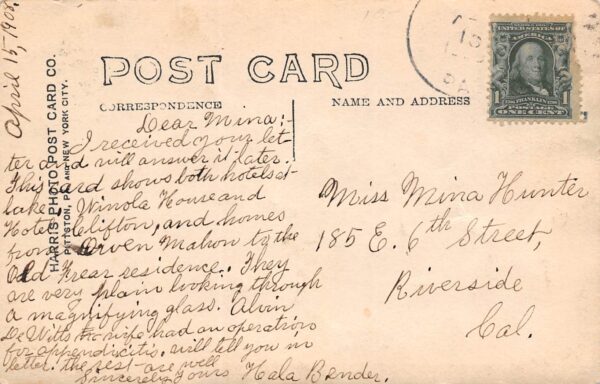 April 15, 190
POST CARD
CORRESPONDENCE
NAME AND ADDRESS
HARRIS PHOTO POST CARD CO.
PITTSTON, PA. AND NEW YORK CITY.
Dear Mina:-
I received your let-
ter and will answer it later.
This card shows both hotels at
Lake Winola House and
Hotel Clifton, and homes
from Orven Mahon to the
Old Frear residence. They
are very plain looking through
a magnifying glass. Alvin
De Witts wife had an operation
for appendicitis, will tell you in
letter. the rest are well
Sincerely Yours Hala Bender.
Miss Mina Hunter
185 E. 6th Street,
Riverside
Cal.
UNITED STATES OF
AMERICA
FRANKLIN
1
POSTAGE
ONE CENT
1
15
PA